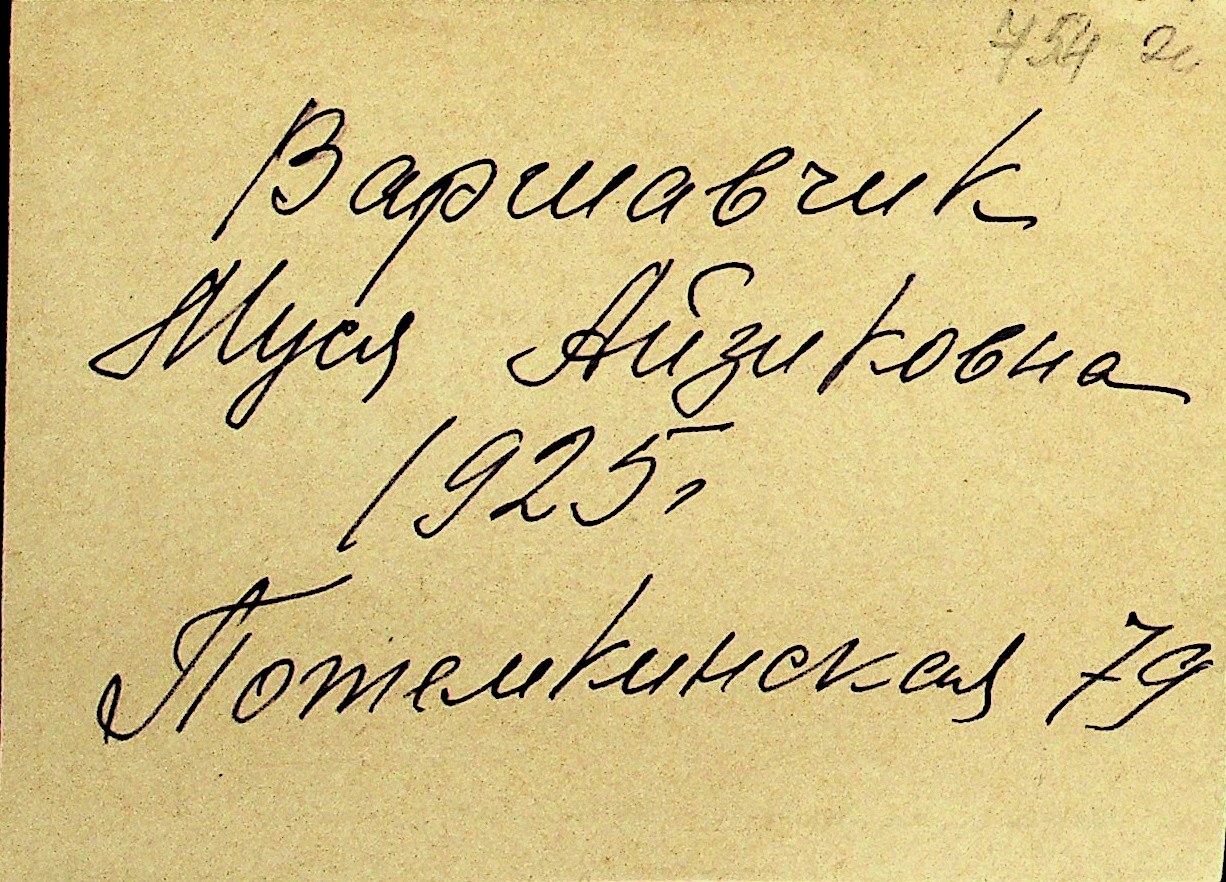 754
Варшавчик
Муся Айзиковна
1925г
Потемкинская 79